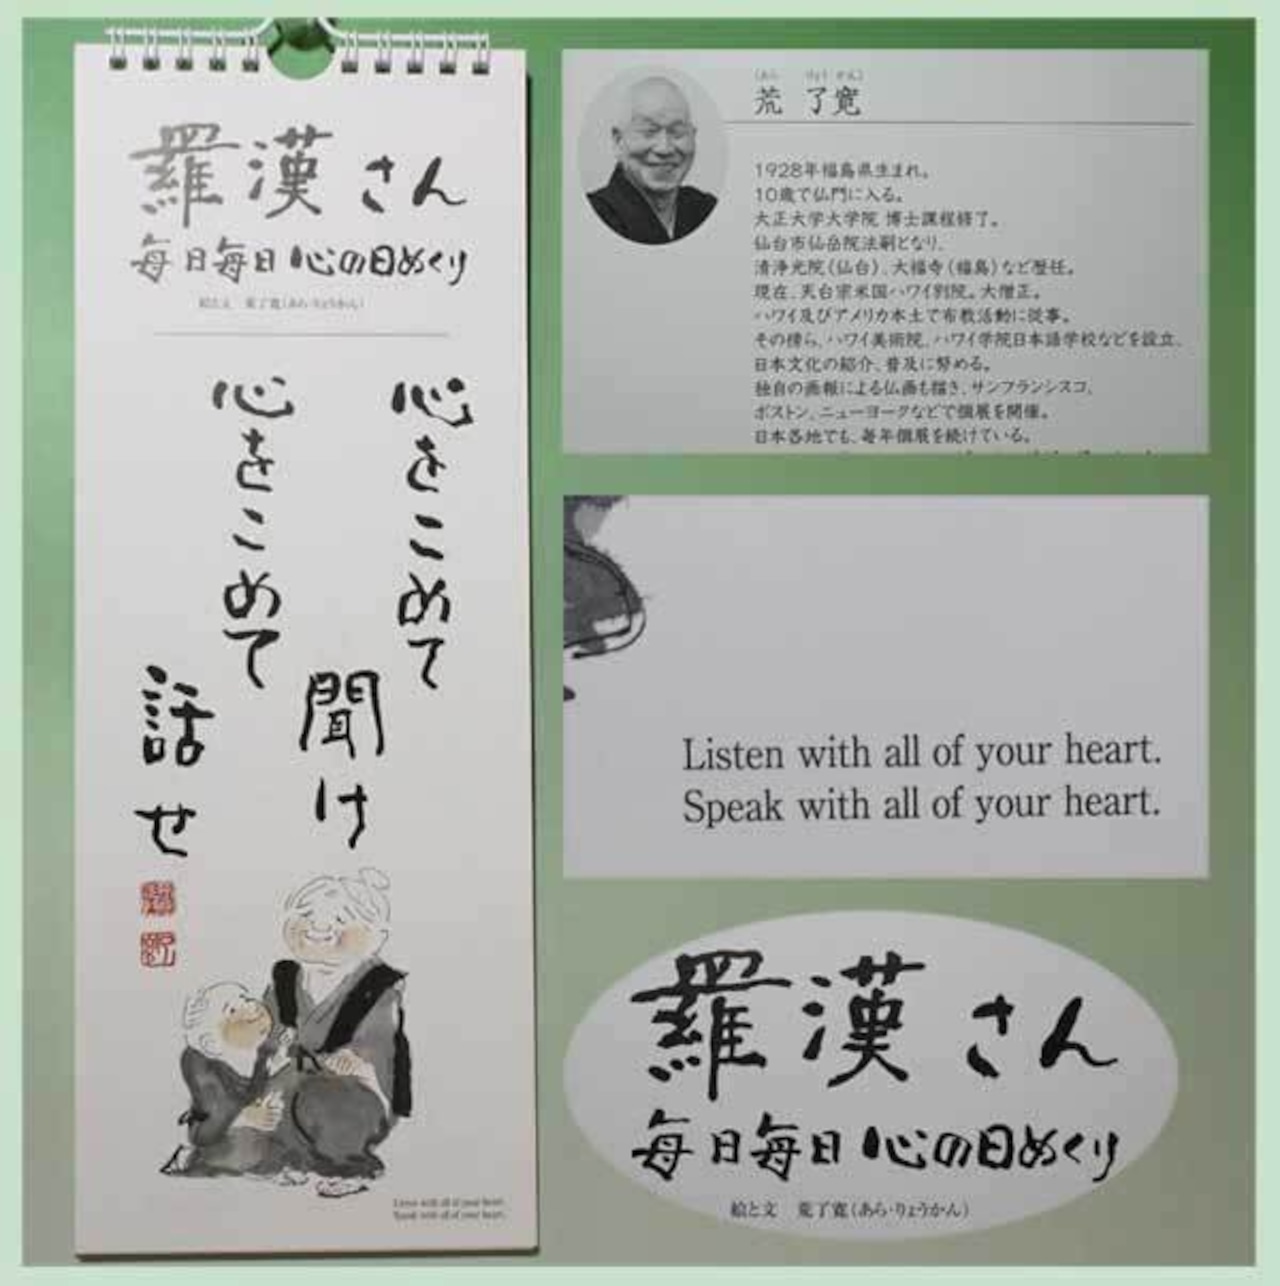 羅漢さん
毎日毎日 心の日めくり
絵と文 荒了寛（あら・りょうかん）
心をこめて
聞け
心をこめて
話せ
Listen with all of your heart.
Speak with all of your heart.
あら りょうかん
荒 了寛
1928年福島県生まれ。
10歳で仏門に入る。
大正大学大学院 博士課程修了。
仙台市仙岳院法嗣となり、
清浄光院（仙台）、大福寺（福島）など歴任。
現在、天台宗米国ハワイ別院。大僧正。
ハワイ及びアメリカ本土で布教活動に従事。
その傍ら、ハワイ美術院、ハワイ学院日本語学校などを設立、
日本文化の紹介、普及に努める。
独自の画報による仏画も描き、サンフランシスコ、
ボストン、ニューヨークなどで個展を開催。
日本各地でも、毎年個展を続けている。
Listen with all of your heart.
Speak with all of your heart.
羅漢さん
毎日毎日 心の日めくり
絵と文 荒了寛（あら・りょうかん）